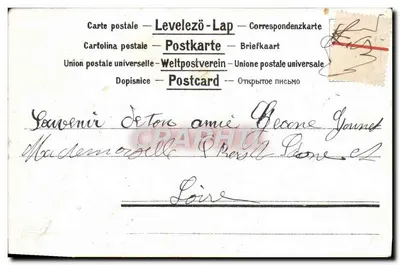 Carte postale – Levelezö-Lap – Correspondenzkarte
Cartolina postale – Postkarte – Briefkaart
Union postale universelle – Weltpostverein – Unione postale universale
Dopisnice – Postcard – Открытое письмо
Souvenir de ton amie Jeanne
Mademoiselle et
Loire